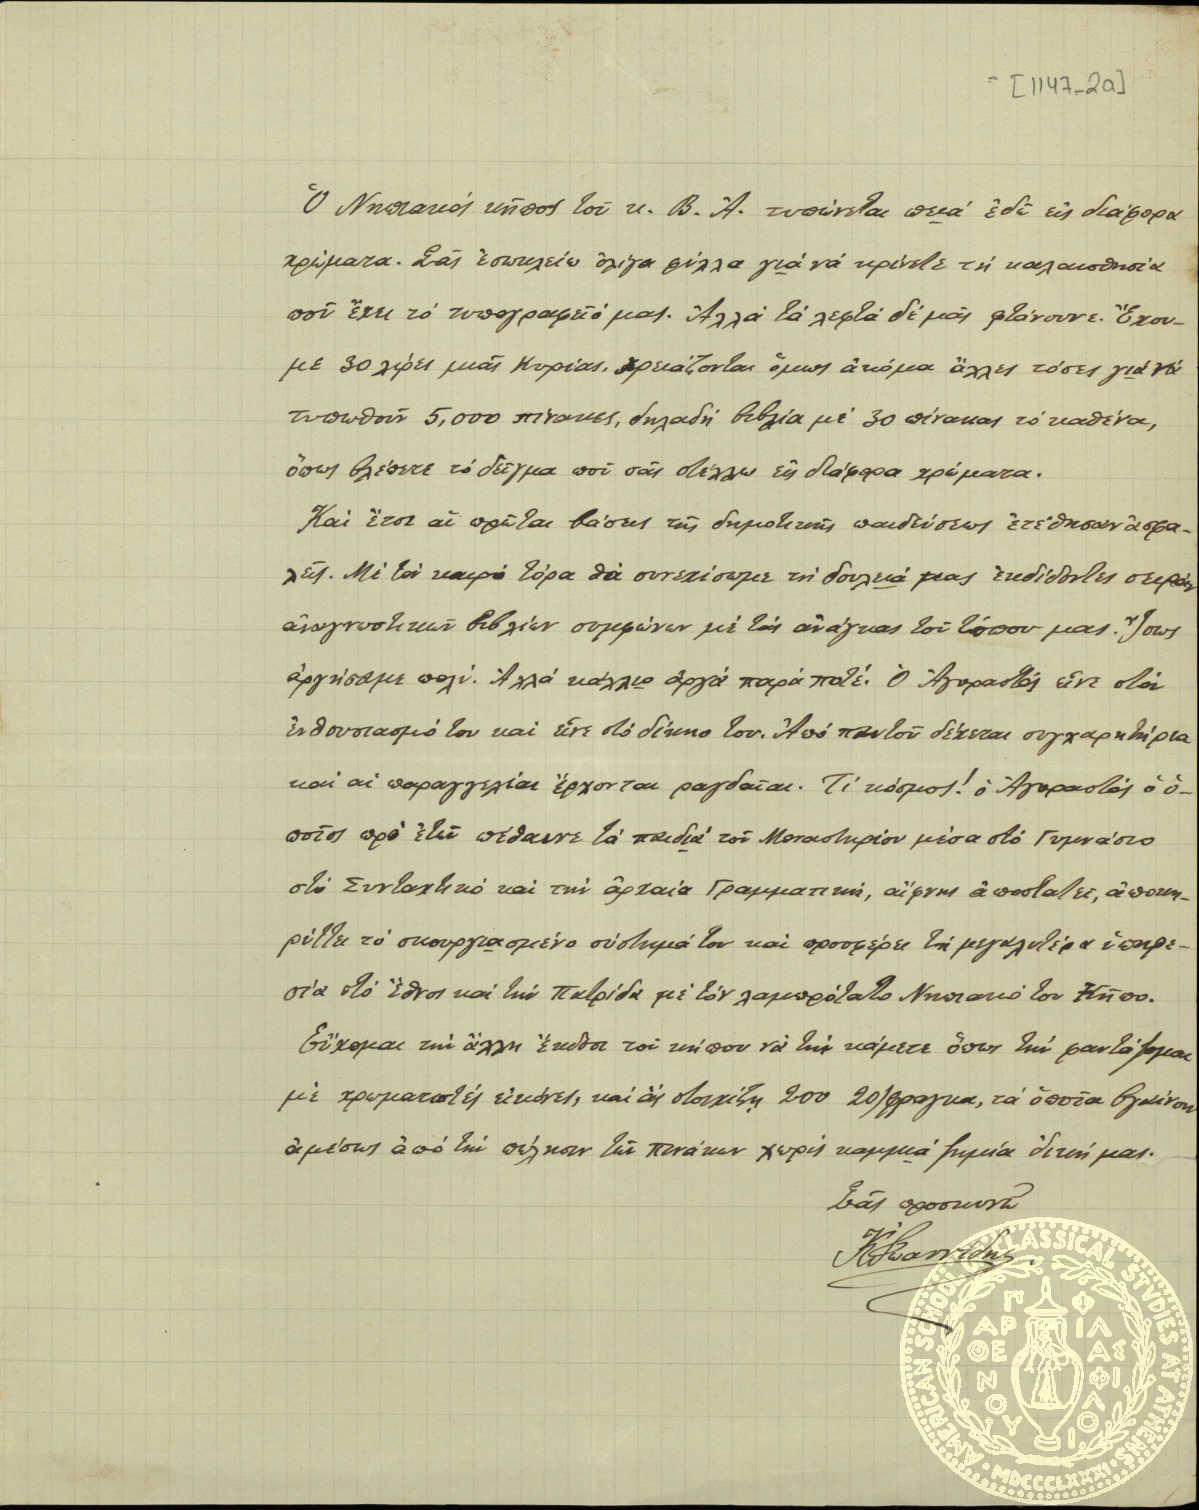 [1147_2α]
Ὁ Νηπιακός κῆπος τοῦ κ. Β. Ἀ. τυπώνεται πειά ἐδῶ εἰς διάφορα
χρώματα. Σᾶς ἐσωκλείω ὀλίγα φύλλα γιά νά κρίνετε τή καλαισθησία
ποῦ ἔχει τό τυπογραφεῖό μας. Ἀλλά τά λεφτά δέ μᾶς φτάνουνε. Ἔχου-
με 30 λίρες μιᾶς Κυρίας, χρειάζονται ὅμως ἀκόμα ἄλλες τόσες γιά νά
τυπωθοῦν 5,000 πίνακες, δηλαδή βιβλία μέ 30 πίνακας τό καθένα,
ὅπως βλέπετε τό δεῖγμα ποῦ σᾶς στέλλω εἰς διάφορα χρώματα.
Καί ἔτσι αἱ πρῶται βάσεις τῆς δημοτικῆς παιδεύσεως ἐτέθησαν ἀσφα-
λεῖς. Μέ τόν καιρό τόρα θά συνεχίσωμε τή δουλειά μας ἐκδίδοντες σειράν
ἀναγνωστικῶν βιβλίων συμφώνων μέ τάς ἀνάγκας τοῦ τόπου μας. Ἴσως
ἀργήσαμε πολύ. Ἀλλά κάλλιο ἀργά παρά ποτέ. Ὁ Ἀγοραστός εἶνε στόν
ἐνθουσιασμό του καί εἶνε στό δίκηο του. Ἀπό παντοῦ δέχεται συγχαρητήρια
καί αἱ παραγγελίαι ἔρχονται ραγδαῖαι. Τί κόσμος! ὁ Ἀγοραστός ὁ ὁ-
ποῖος πρό ἐτῶν πέθαινε τά παιδιά τοῦ Μοναστηρίου μέσα στό Γυμνάσιο
στό Συντακτικό καί τήν ἀρχαία Γραμματική, αἴφνης ἀποστατεῖ, ἀποκη-
ρύττει τό σκουργιασμένο σύστημά του καί προσφέρει τή μεγαλυτέρα ὑπηρε-
σία στό Ἔθνος καί τήν Πατρίδα μέ τόν λαμπρότατο Νηπιακό του Κῆπο.
Εὔχομαι τήν ἄλλη ἔκδοσι τοῦ κήπου νά τήν κάμετε ὅπως τήν φαντάζομαι
μέ χρωματιστές εἰκόνες, καί ἄς στοιχίζῃ 200 20/φραγκα, τά ὁποῖα βγαίνουν
ἀμέσως ἀπό τήν πώλησιν τῶν πινάκων χωρίς καμμιά ζημία δική μας.
Σᾶς προσκυνῶ
Κ Ἰωαννίδης
AMERICAN SCHOOL OF CLASSICAL STVDIES AT ATHENS
ΠΑΡΘΕΝΟΥ ΦΙΛΑΣ ΦΙΛΟΙ
MDCCCLXXXI